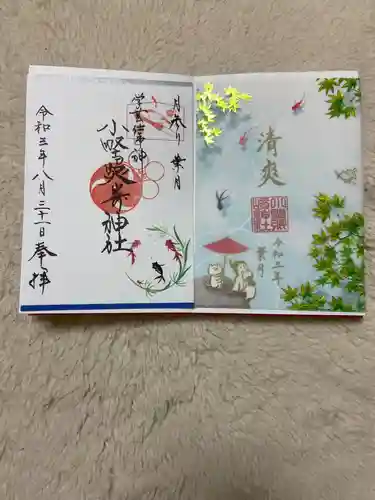 月参り 葉月
学業信仰神
小野照崎神社
令和三年八月三十一日奉拝
清爽
令和三年
葉月